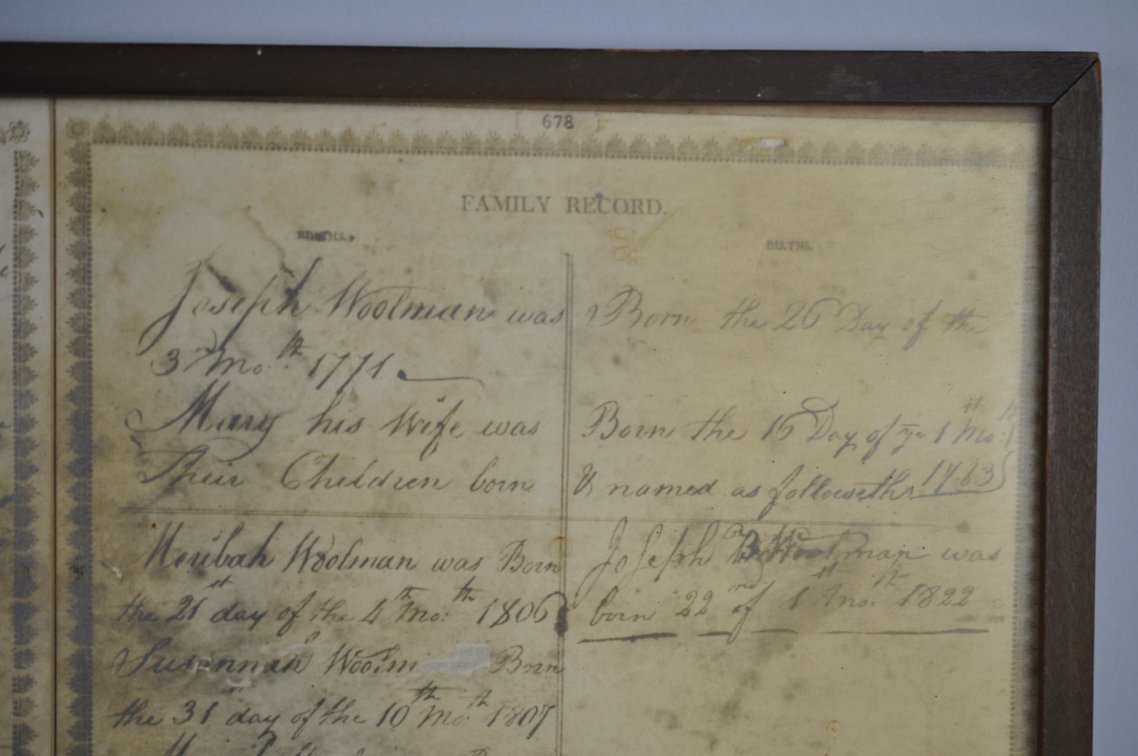 678
FAMILY RECORD.
BIRTHS.
BIRTHS.
Joseph Woolman was Born the 26 Day of the
3rd Mo. th 1771.
Mary his Wife was Born the 16 Day of ye 1st Mo:
Their Children born & named as followeth 1783
Meribah Woolman was Born
the 21st day of the 4th Mo: th 1806
Susannah Woolm Born
the 31st day of the 10th Mo: th 1807
Joseph B Woolman was
born 22nd of 1st Mo. th 1822